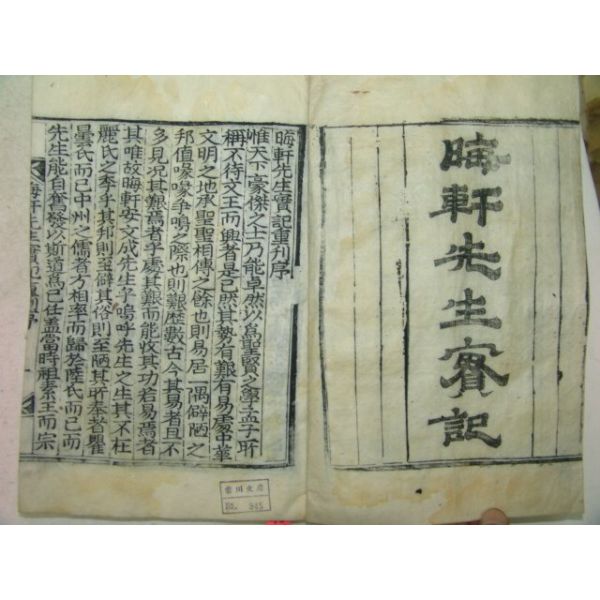 晦軒先生實記
晦軒先生實記重刊序
惟天下豪傑之士乃能卓然以爲聖賢之學孟子所
稱不待文王而興者是已然其勢有難有易處中華
文明之地承聖聖相傳之餘也則易居一隅僻陋之
邦值喙喙爭鳴之際也則難歷數古今其易者且不
多見况其難焉者乎處其難而能收其功若易焉者
其唯故晦軒安文成先生乎嗚呼先生之生其不在
麗氏之季乎其邦則至僻其俗則至陋其所奉者瞿
曇氏而已中州之儒者方相率而歸於陸氏而已而
先生能自奮發以斯道爲己任盖當時祖素王而宗
晦軒先生實記重刊序
No. 945